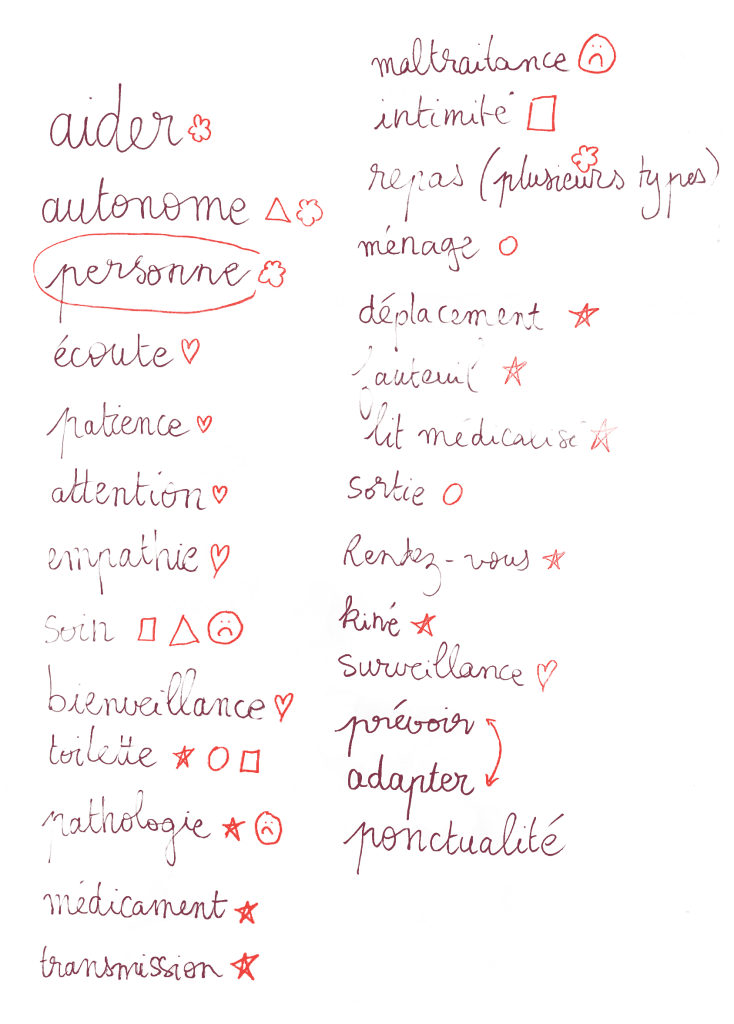 aider
autonome
personne
écoute
patience
attention
empathie
soin
bienveillance
toilette
pathologie
médicament
transmission
maltraitance
intimité
repas (plusieurs types)
ménage
déplacement
fauteuil
lit médicalisé
sortie
Rendez-vous
kiné
surveillance
prévoir
adapter
ponctualité